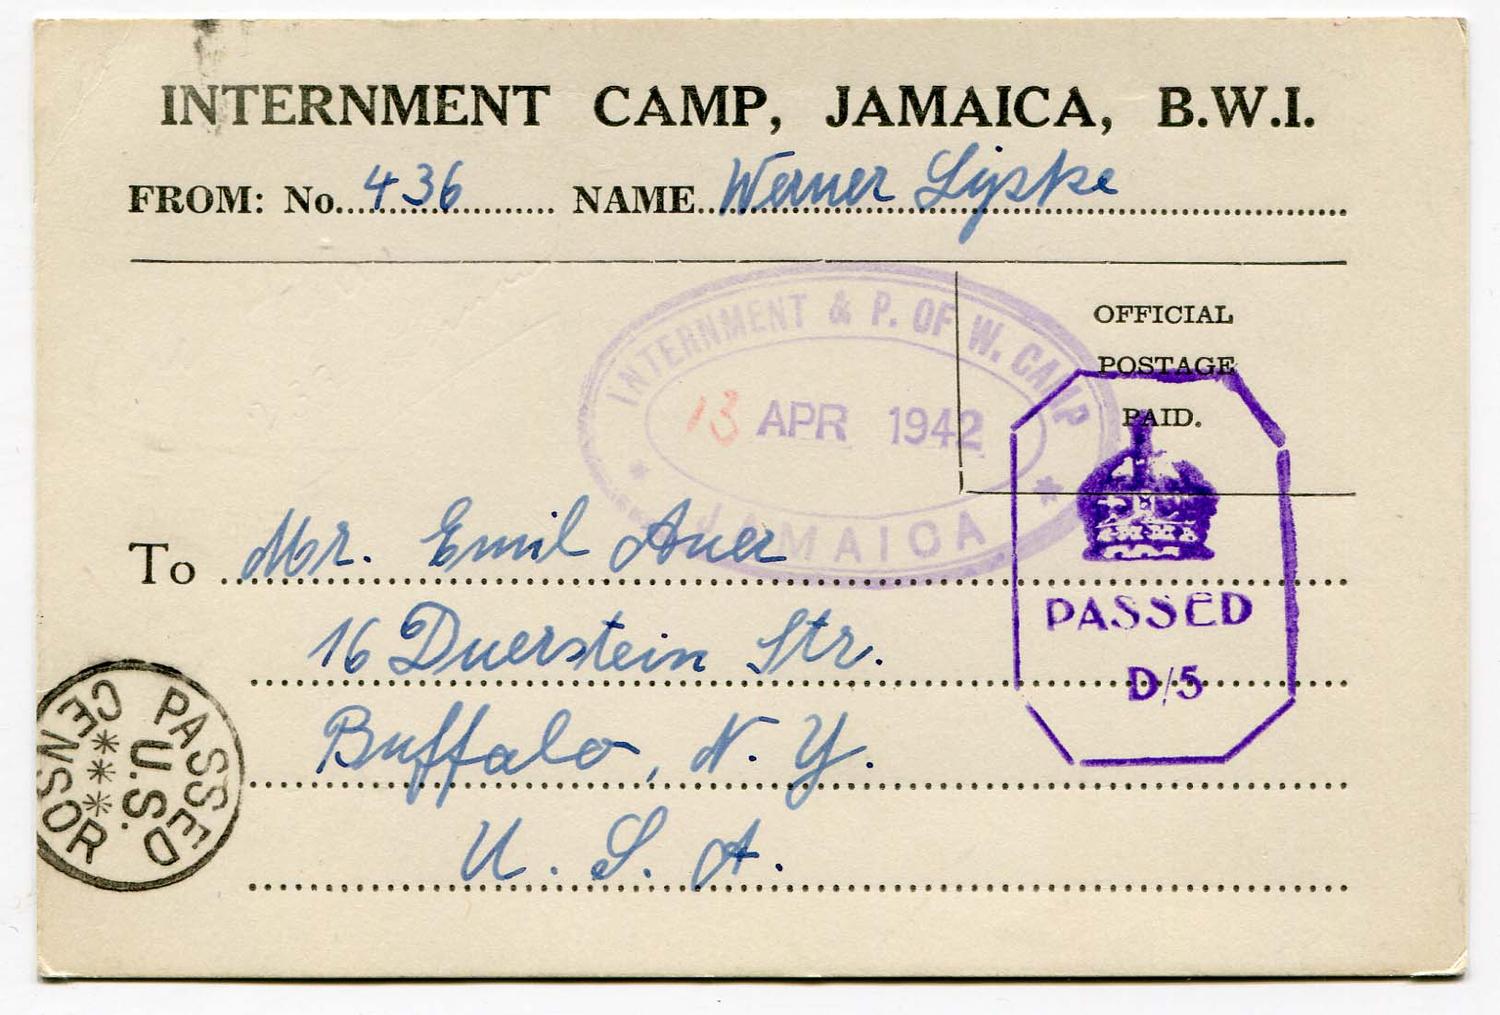 INTERNMENT CAMP, JAMAICA, B.W.I.
FROM: No. 436 NAME Werner Lipske
INTERNMENT & P. OF W. CAMP
13 APR 1942
JAMAICA
OFFICIAL
POSTAGE
PAID.
PASSED
D/5
To Mr. Emil Auer
16 Duerstein Str.
Buffalo, N. Y.
U. S. A.
PASSED
U.S.
CENSOR